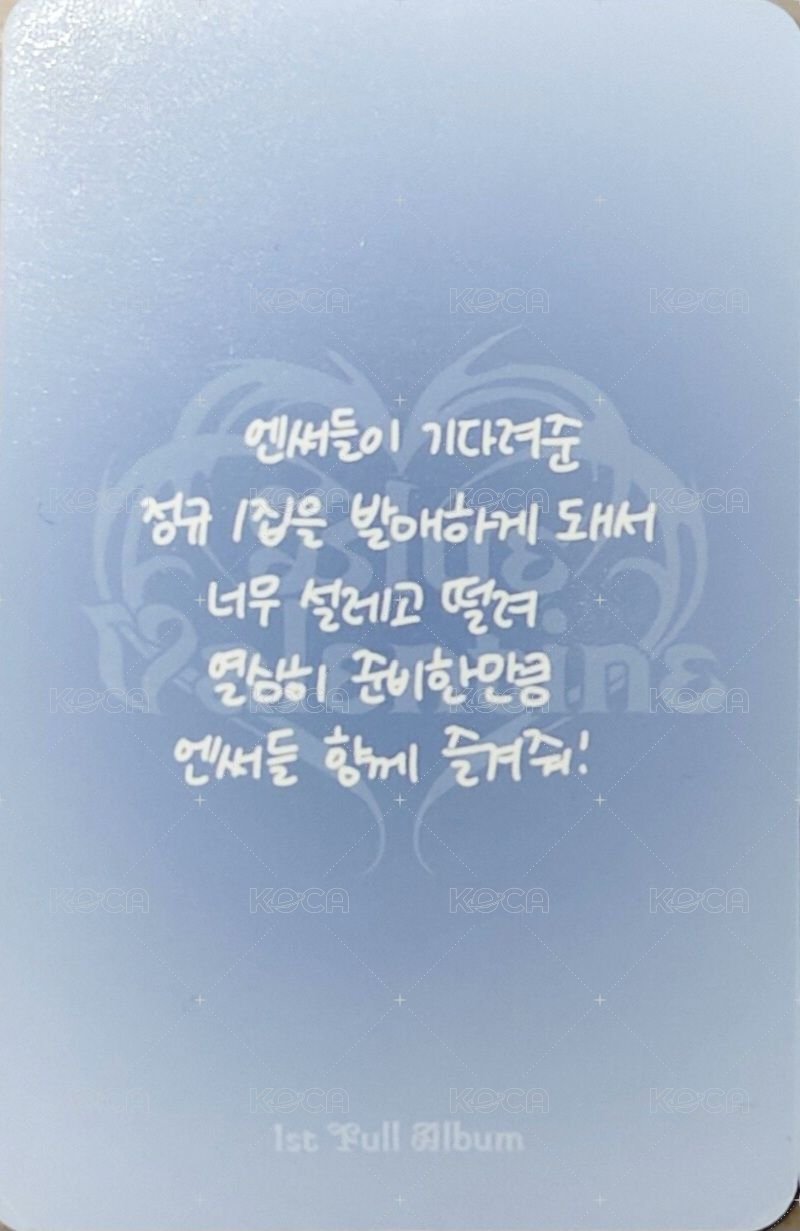 엔써들이 기다려준
정규 1집을 발매하게 돼서
너무 설레고 떨려
열심히 준비한만큼
엔써들 함께 즐겨줘!
Blue
Valentine
1st Full Album
KOCA